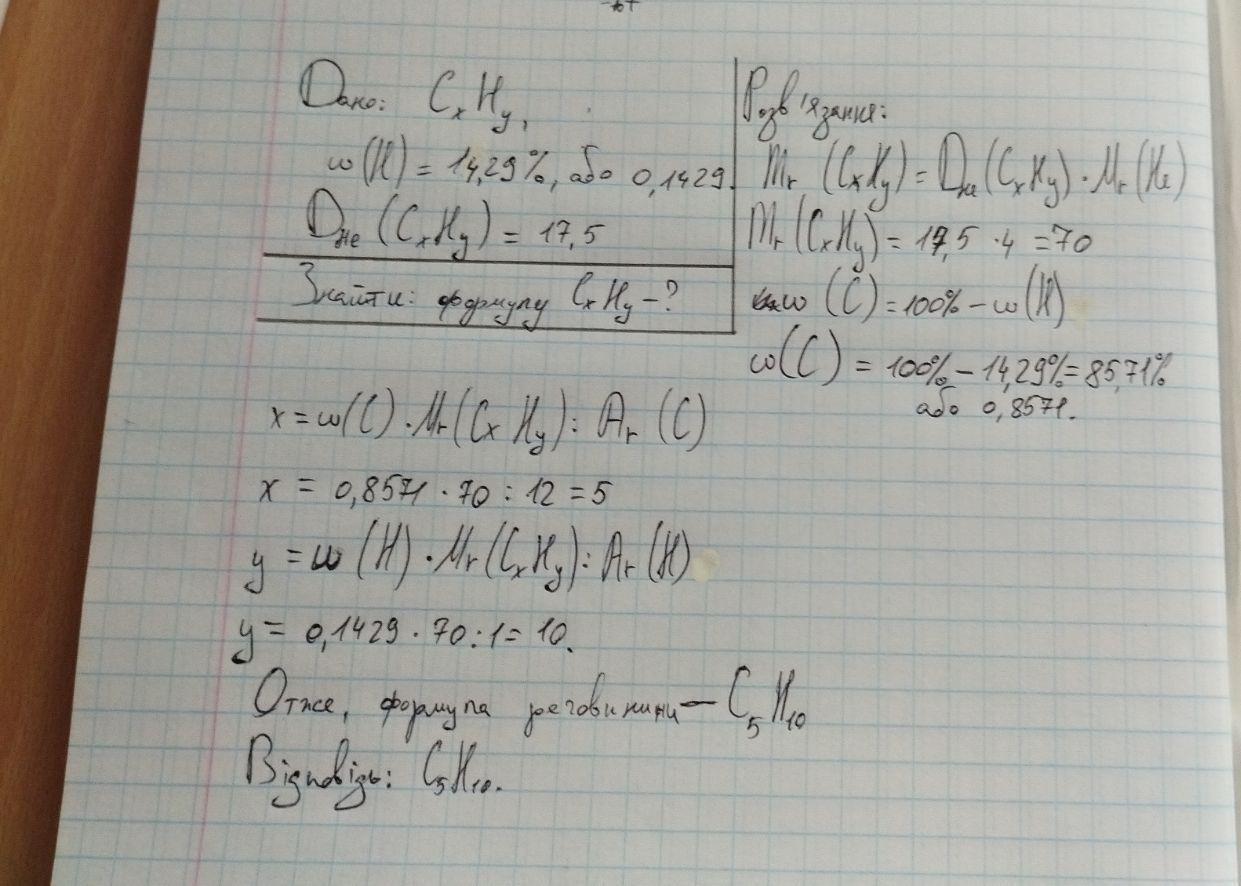 Дано: CxHy,
w(H) = 14,29%, або 0,1429.
DHe (CxHy) = 17,5
Знайти: формулу CxHy-?
Розв'язання:
Mr (CxHy) = DHe (CxHy) · Mr (He)
Mr (CxHy) = 17,5 · 4 = 70
w (C) = 100% - w(H)
w(C) = 100% - 14,29% = 85,71%
або 0,8571.
x = w(C) · Mr (CxHy) : Ar (C)
x = 0,8571 · 70 : 12 = 5
y = w (H) · Mr (CxHy) : Ar (H)
y = 0,1429 · 70 : 1 = 10.
Отже, формула речовини - C5H10
Відповідь: C5H10.